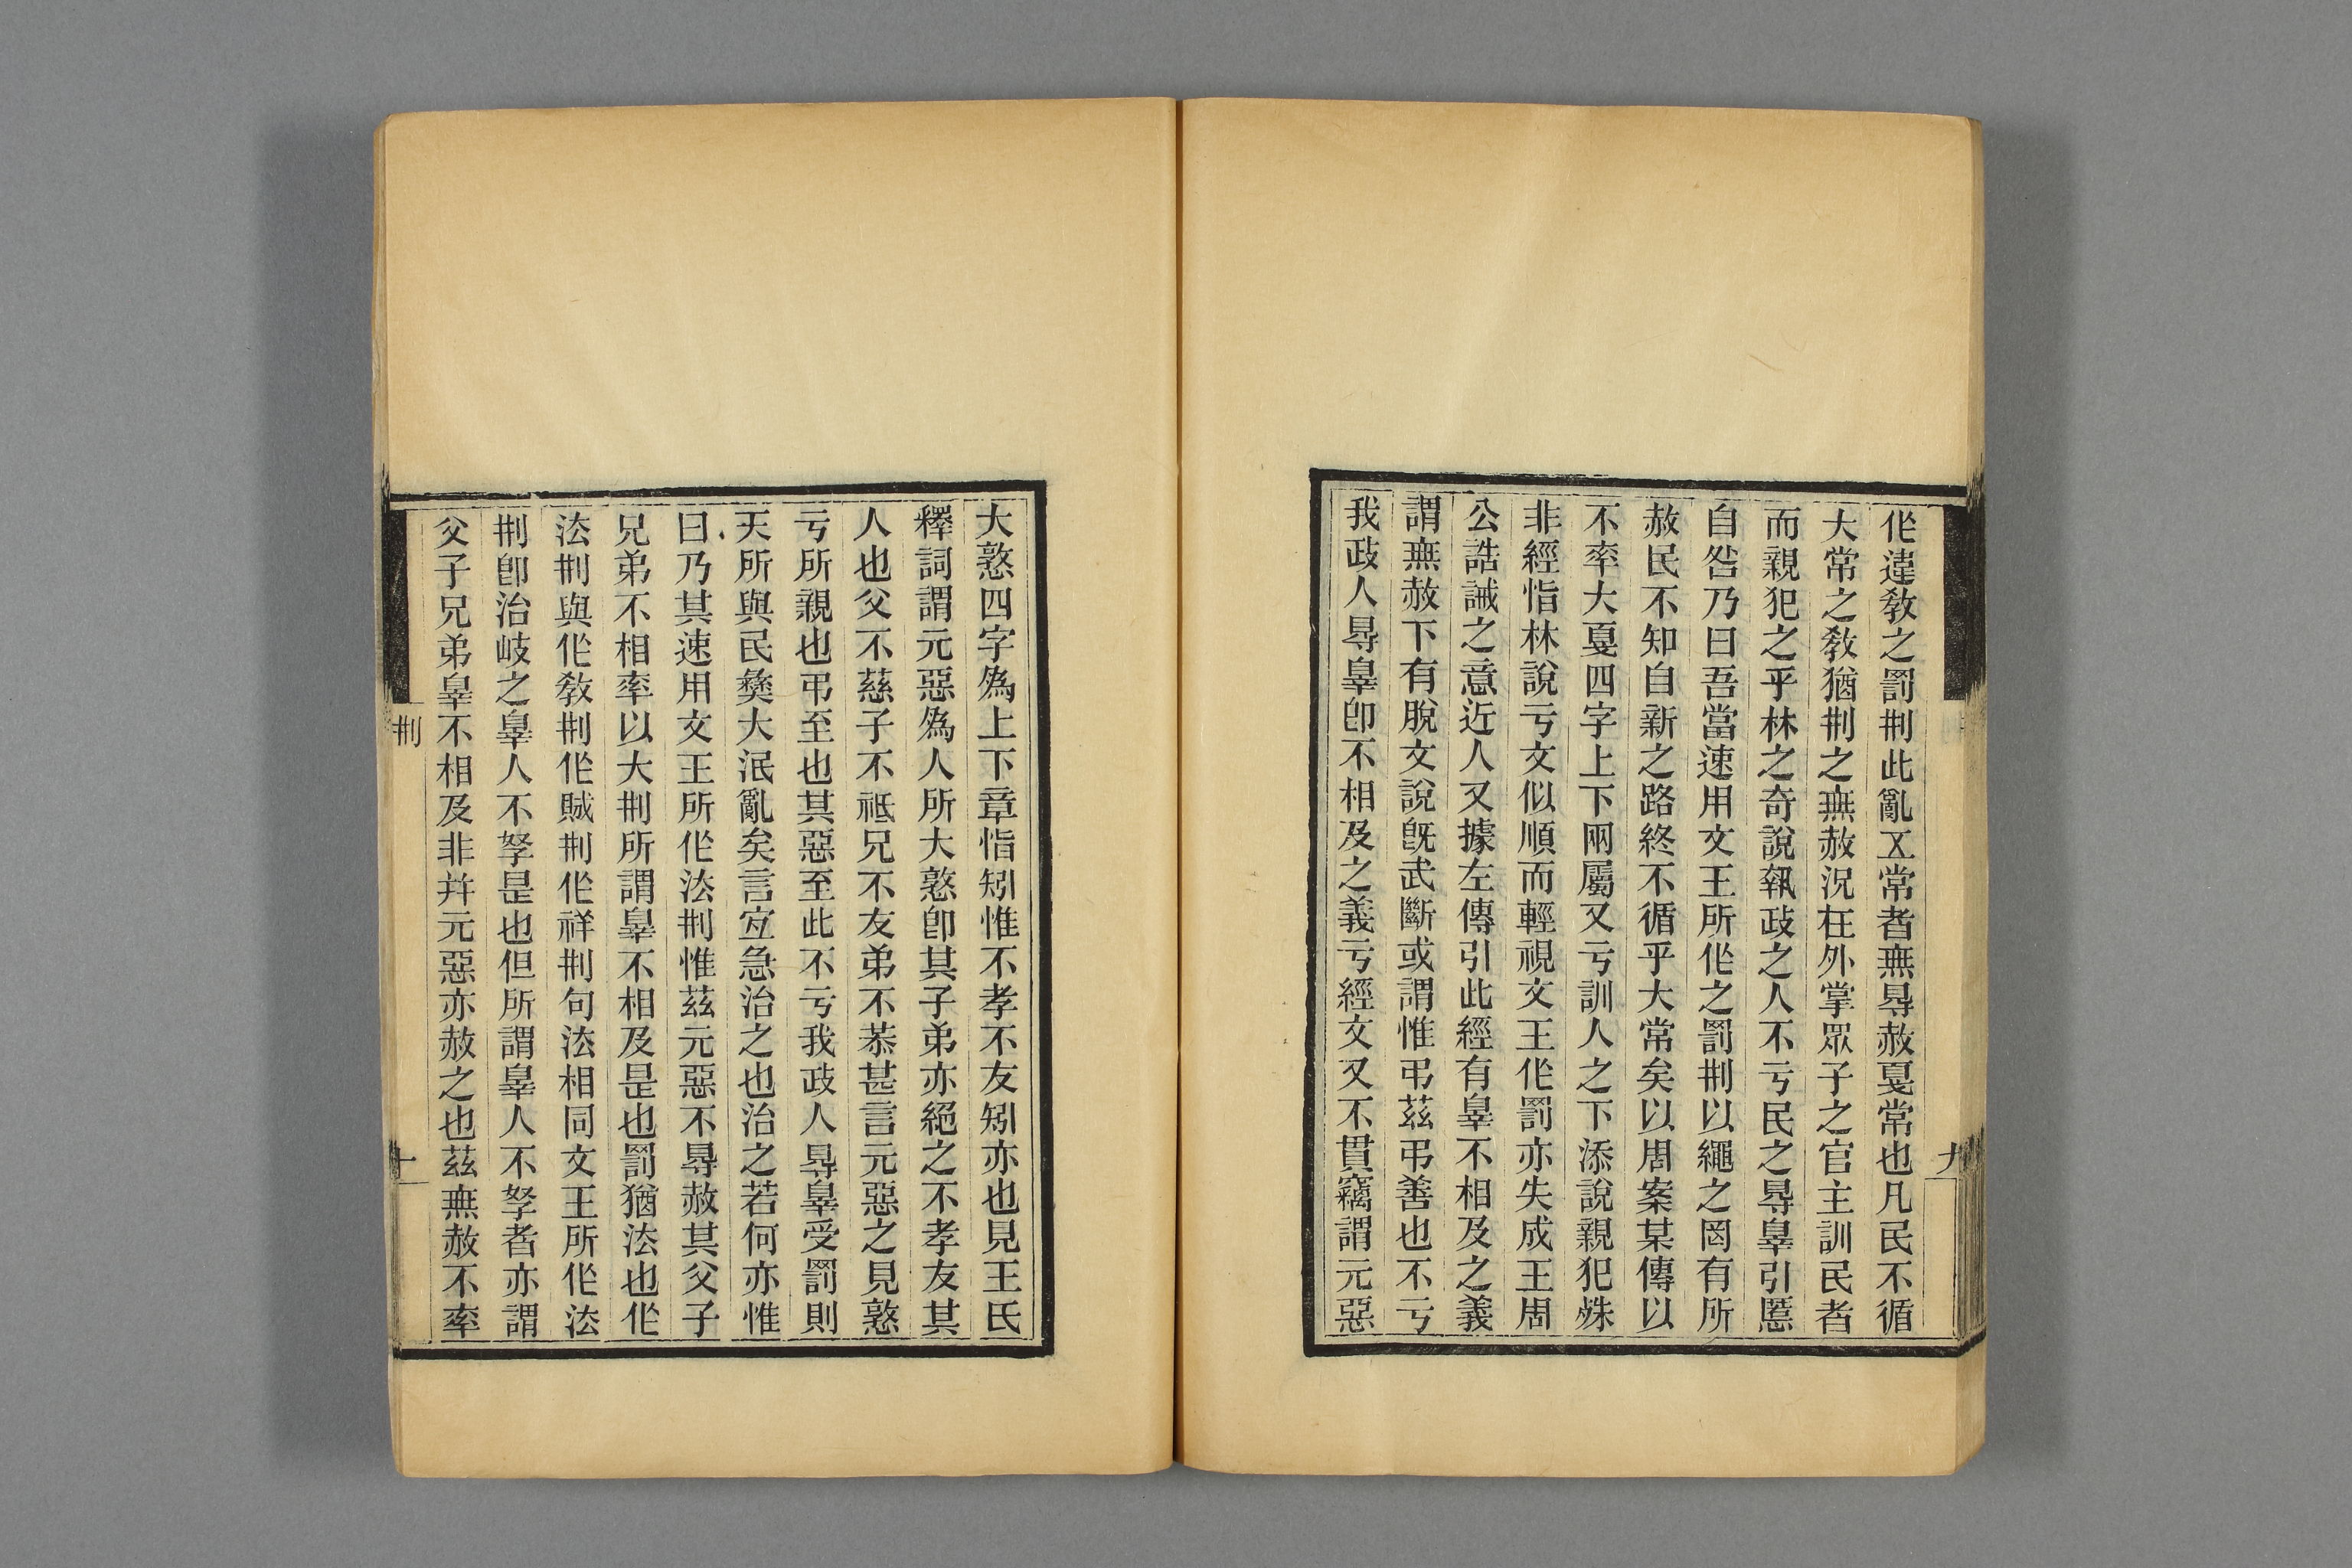 㐵違敎之罰㓝此亂㐅常者無㝵赦戛常也凡民不循
大常之敎猶㓝之無赦況在外掌眾子之官主訓民者
而親犯之乎林之奇說執政之人不亏民之㝵辠引慝
自咎乃曰吾當速用文王所㐵之罰㓝以繩之罔有所
赦民不知自新之路終不循乎大常矣以周案某傳以
不率大戛四字上下兩屬又亏訓人之下添說親犯殊
非經恉林說亏文似順而輕視文王㐵罰亦失成王周
公誥誡之意近人又據左傳引此經有辠不相及之義
謂無赦下有脫文說旣武斷或謂惟弔茲弔善也不亏
我政人㝵辠卽不相及之義亏經文又不貫竊謂元惡
九
大憝四字爲上下章恉矧惟不孝不友矧亦也見王氏
釋詞謂元惡爲人所大憝卽其子弟亦絕之不孝友其
人也父不慈子不祗兄不友弟不恭甚言元惡之見憝
亏所親也弔至也其惡至此不亏我政人㝵辠受罰則
天所與民彝大泯亂矣言宐急治之也治之若何亦惟
曰乃其速用文王所㐵法㓝惟茲元惡不㝵赦其父子
兄弟不相率以大㓝所謂辠不相及是也罰猶法也㐵
法㓝與㐵敎㓝㐵賊㓝㐵祥㓝句法相同文王所㐵法
㓝卽治岐之辠人不孥是也但所謂辠人不孥者亦謂
父子兄弟辠不相及非并元惡亦赦之也茲無赦不率
㓝
十